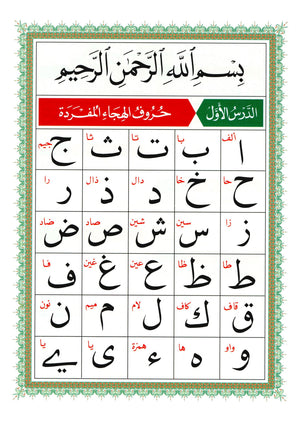 بِسْمِ ٱللَّهِ ٱلرَّحْمَٰنِ ٱلرَّحِيمِ
الدَّرْسُ الأَوَّل حُرُوفُ الهِجَاءِ المُفْرَدَة
ألف با تا ثا جيم
ا ب ت ث ج
حا خا دال ذال را
ح خ د ذ ر
زا سين شين صاد ضاد
ز س ش ص ض
طا ظا عين غين فا
ط ظ ع غ ف
قاف كاف لام ميم نون
ق ك ل م ن
واو ها همزة يا يا
و ه ء ي ے